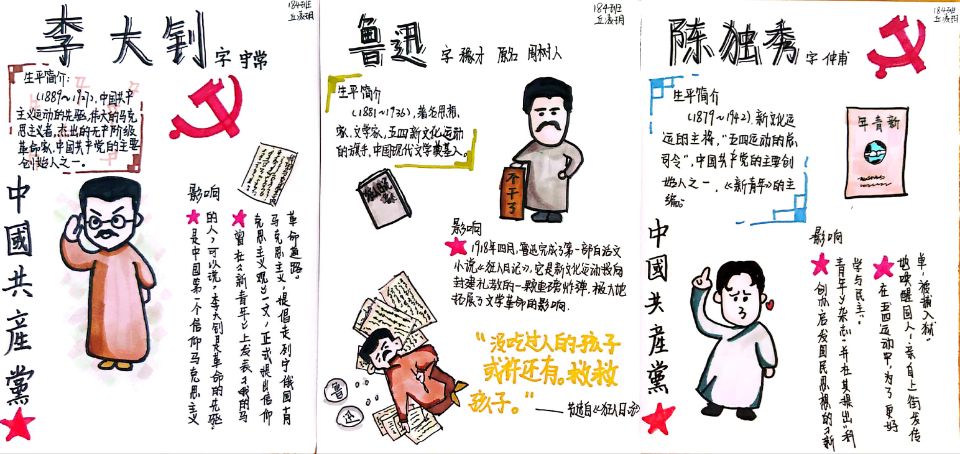 184班
丘凌玥
李大钊 字 守常
生平简介:
(1889~1927),中国共产
主义运动的先驱,伟大的马克
思主义者,杰出的无产阶级
革命家,中国共产党的主要
创始人之一。
中國共産黨
影响
是中国第一个信仰马克思主义
的人,可以说,李大钊是革命的先驱。
曾在《新青年》上发表了《我的马
克思主义观》一文,正式提出信仰
马克思主义,提倡走列宁俄国十月
革命道路。
184班
丘凌玥
鲁迅 字 豫才 原名 周树人
生平简介
(1881~1936),著名思想
家、文学家,五四新文化运动
的旗手,中国现代文学奠基人。
不干了
影响
1918年四月,鲁迅完成了第一部白话文
小说《狂人日记》,它是新文化运动投向
封建礼教的一颗重磅炸弹,极大地
拓展了文学革命的影响.
鲁
迅
"没吃过人的孩子
或许还有。救救
孩子。"
——节选自《狂人日记》
184班
丘凌玥
陈独秀 字 仲甫
生平简介
(1879~1942),新文化运
动的主将,"五四运动的总
司令",中国共产党的主要创
始人之一,《新青年》的主
编。
年青新
中國共産黨
影响
创办启发国民思想的《新
青年》杂志,并在其提出"科
学与民主。
在五四运动中,为了更好
地唤醒国人,亲自上街发传
单,被捕入狱。